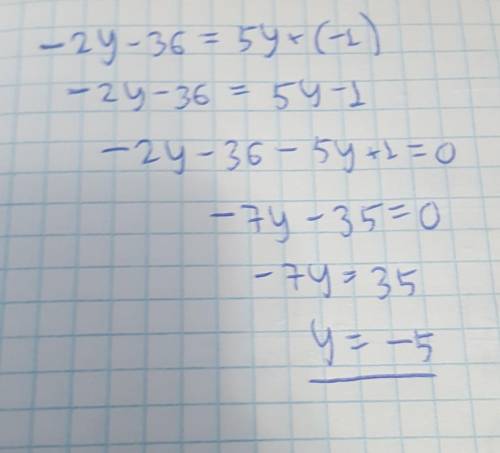 -2y-36 = 5y+(-1)
-2y-36 = 5y-1
-2y-36-5y+1=0
-7y-35=0
-7y=35
y=-5